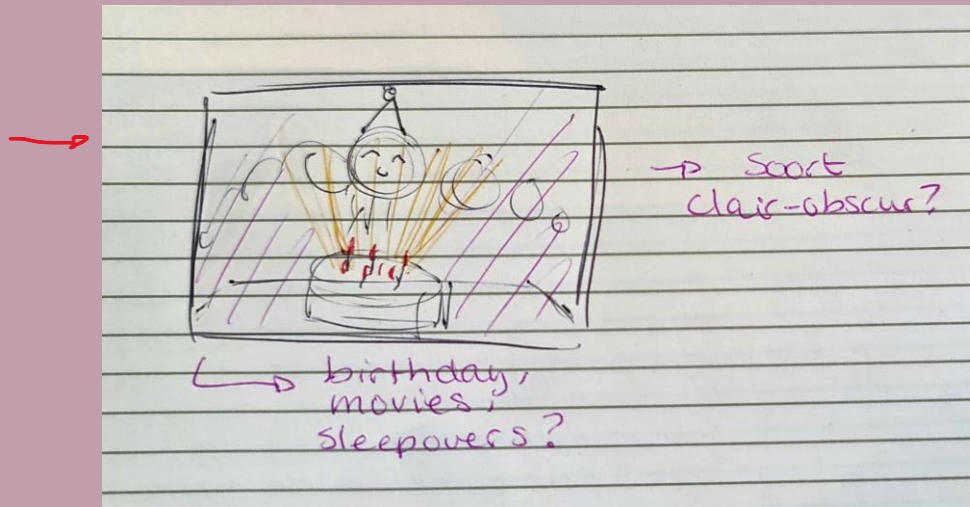 → Soort
clair-obscur?
↳ birthday,
movies,
sleepovers?